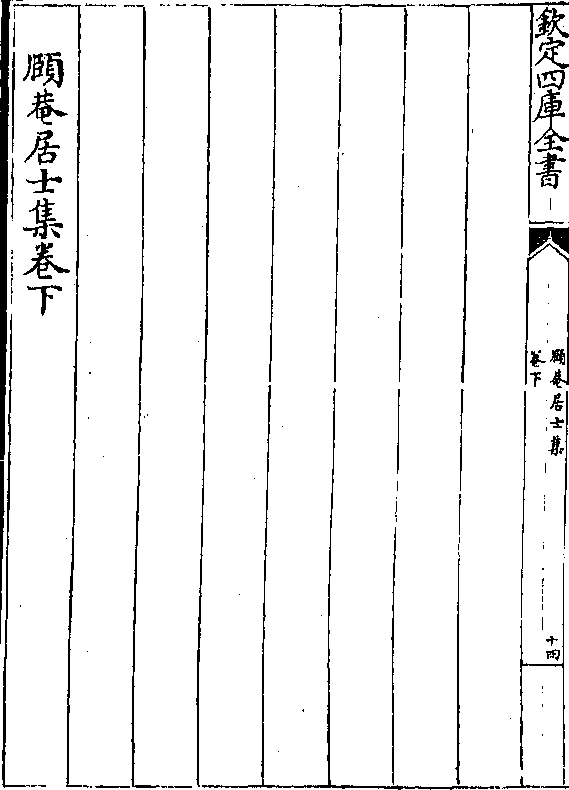 欽定四庫全書
頥菴居士集
卷下
十四
頥菴居士集卷下